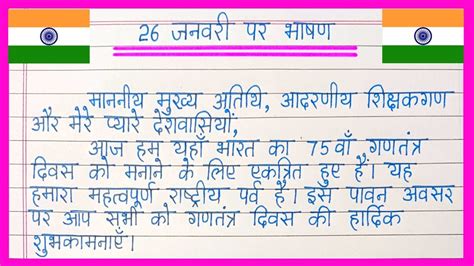 26 जनवरी पर भाषण
माननीय मुख्य अतिथि, आदरणीय शिक्षकगण
और मेरे प्यारे देशवासियों,
आज हम यहाँ भारत का 75वाँ गणतंत्र
दिवस को मनाने के लिए एकत्रित हुए हैं। यह
हमारा महत्वपूर्ण राष्ट्रीय पर्व है। इस पावन अवसर
पर आप सभी को गणतंत्र दिवस की हार्दिक
शुभकामनाएँ।